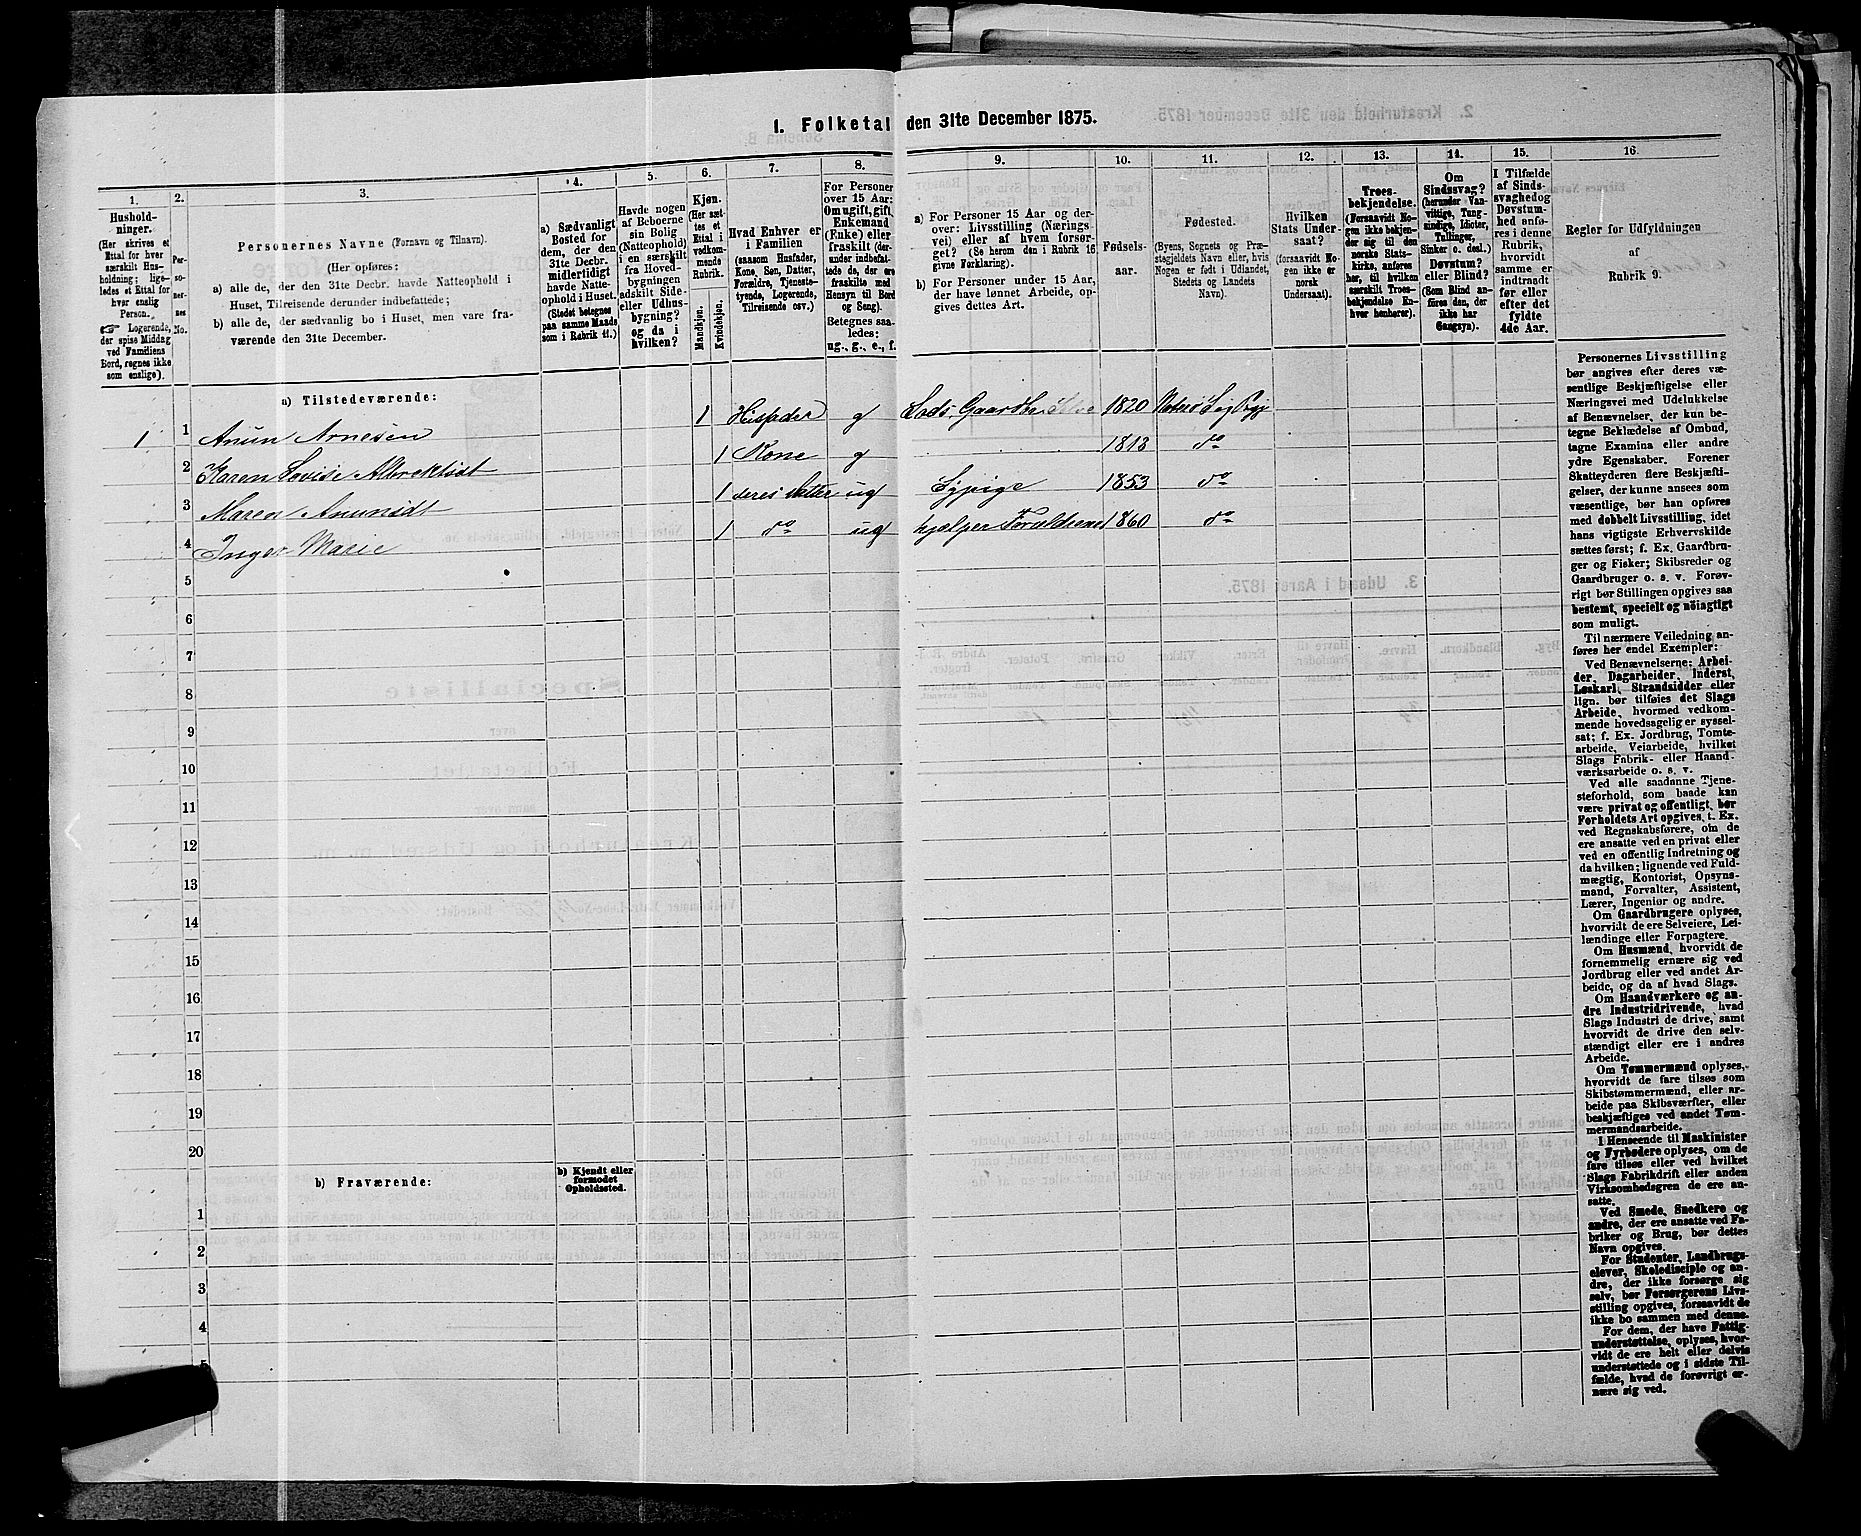 1. Folketal den 31te December 1875.
1.
Hushold-
ninger.
(Her skrives et
Ettal for hver
særskilt Hus-
holdning; lige-
ledes et Ettal for
hver enslig
Person.
☞ Logerende,
der spise Middag
ved Familiens
Bord, regnes ikke
som enslige).
2.
Per-
so-
ner-
nes
No.
3.
Personernes Navne (Fornavn og Tilnavn).
(Her opføres:
a) alle de, der den 31te Decbr. havde Natteophold i
Huset, Tilreisende derunder indbefattede;
b) alle de, der sædvanlig bo i Huset, men vare fra-
værende den 31te December.
4.
a) Sædvanligt
Bosted for
dem, der den
31te Decbr.
midlertidigt
havde Natte-
ophold i Huset.
(Stedet betegnes
paa samme Maade
som i Rubrik 11.)
5.
Havde nogen
af Beboerne
sin Bolig
(Natteophold)
i en særskilt
fra Hoved-
bygningen
adskilt Side-
eller Udhus-
bygning?
og da i
hvilken?
6.
Kjøn.
(Her sæt-
tes et
Ettal i
vedkom-
mende
Rubrik.
Mandkjøn.
Kvindekjøn.
7.
Hvad Enhver er
i Familien
(saasom Husfader,
Kone, Søn, Datter,
Forældre, Tjeneste-
tyende, Logerende,
Tilreisende osv.)
8.
For Personer
over 15 Aar:
Om ugift, gift,
Enkemand
(Enke) eller
fraskilt (der-
under indbefat-
tede de, der ere
fraskilte med
Hensyn til Bord
og Seng).
Betegnes saa-
ledes:
ug., g., e., f.
9.
a) For Personer 15 Aar og der-
over: Livsstilling (Nærings-
vei) eller af hvem forsør-
get? (Se herom den i Rubrik 16
givne Forklaring).
b) For Personer under 15 Aar,
der have lønnet Arbeide, op-
gives dettes Art.
10.
Fødsels-
aar.
11.
Fødested.
(Byens, Sognets og Præ-
stegjeldets Navn eller, hvis
Nogen er født i Udlandet,
Stedets og Landets
Navn).
12.
Hvilken
Stats Under-
saat?
(forsaavidt No-
gen ikke er
norsk
Undersaat).
13.
Troes-
bekjendelse.
(Forsaavidt No-
gen ikke bekjen-
der sig til den
norske Stats-
kirke, anføres
her, til hvilken
særskilt Troes-
bekjendelse En-
hver henhører).
14.
Om
Sindssvag?
(herunder Van-
vittige, Tung-
sindige, Idioter,
Tullinger,
Sinker o. desl.)
Døvstum?
eller Blind?
(Som Blind an-
føres den, der
ikke har
Gangsyn).
15.
I Tilfælde
af Sinds-
svaghed og
Døvstum-
hed anfø-
res i denne
Rubrik,
hvorvidt
samme er
indtraadt
før eller
efter det
fyldte
4de Aar.
16.
Regler for Udfyldningen
af
Rubrik 9.
a) Tilstedeværende:
1 1 Anun Arnesen 1 Husfader g Gaardbr 1820
2 Karen Lovise 1 Kone g 1813 do
3 Maren Anunsdt 1 deres Datter ug Sypige 1853 do
4 Inger Marie 1 do ug hjælper Forældrene 1860 do
5
6
7
8
9
10
11
12
13
14
15
16
17
18
19
20
b) Fraværende:
b) Kjendt eller
formodet
Opholdssted.
1
2
3
4
Personernes Livsstilling
bør angives efter deres væ-
sentlige Beskjæftigelse eller
Næringsvei med Udelukkelse
af Benævnelser, der kun be-
tegne Beklædelse af Ombud,
tagne Examina eller andre
ydre Egenskaber. Forener
Skatteyderen flere Beskjæfti-
gelser, der kunne ansees som
væsentlige, bør han opføres
med dobbelt Livsstilling, idet
hans vigtigste Erhvervskilde
sættes først; f. Ex. Gaardbru-
ger og Fisker; Skibsreder og
Gaardbruger o. s. v. Forøv-
rigt bør Stillingen opgives saa
bestemt, specielt og nöiagtigt
som muligt.
Til nærmere Veiledning an-
føres her endel Exempler:
Ved Benævnelserne: Arbei-
der, Dagarbeider, Inderst,
Løskarl, Strandsidder eller
lign. bør tilføies det Slags
Arbeide, hvormed vedkom-
mende hovedsagelig er syssel-
sat; f. Ex. Jordbrug, Tomte-
arbeide, Veiarbeide, hvilket
Slags Fabrik- eller Haand-
værksarbeide o. s. v.
Ved alle saadanne Tjene-
steforhold, som baade kan
være privat og offentligt, bør
Forholdets Art opgives, t. Ex.
ved Regnskabsførere, om de
ere ansatte ved en privat eller
ved en offentlig Indretning og
da hvilken; lignende ved Fuld-
mægtig, Kontorist, Opsyns-
mand, Forvalter, Assistent,
Lærer, Ingeniør og andre.
Om Gaardbrugere oplyses,
hvorvidt de ere Selveiere, Lei-
lændinge eller Forpagtere.
Om Husmænd, hvorvidt de
fornemmelig ernære sig ved
Jordbrug eller ved andet Ar-
beide, og da af hvad Slags.
Om Haandværkere og an-
dre Industridrivende, hvad
Slags Industri de drive, samt
hvorvidt de drive den selv-
stændigt eller ere i andres
Arbeide.
Om Tømmermænd oplyses,
hvorvidt de fare tilsøs som
Skibstømmermænd, eller ar-
beide paa Skibsværfter, eller
beskjæftiges ved andet Tøm-
mermandsarbeide.
I Henseende til Maskinister
og Fyrbødere oplyses, om de
fare tilsøs eller ved hvilket
Slags Fabrikdrift eller anden
Virksomhedsgren de ere an-
satte.
Ved Smede, Snedkere og
andre, der ere ansatte ved Fa-
briker og Brug, bør dettes
Navn opgives.
For Studenter, Landbrugs-
elever, Skoledisciple og an-
dre, der ikke forsørge sig
selv, bør Forsørgerens Livs-
stilling opgives, forsaavidt de
ikke bo sammen med denne.
For dem, der have Fattig-
understøttelse, oplyses, hvor-
vidt de ere helt eller delvis
understøttede og i sidste Til-
fælde, hvad de forøvrigt er-
nære sig ved.